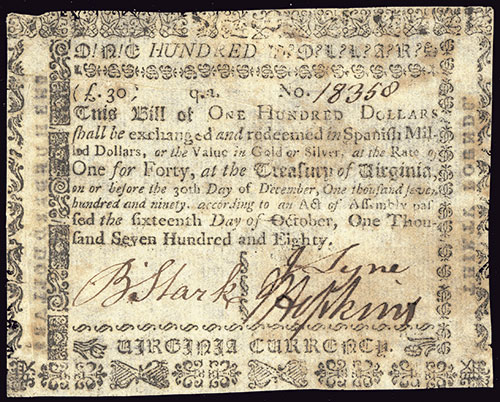 ONE HUNDRED DOLLARS
(£.30) q.a. No. 18358
This Bill of ONE HUNDRED DOLLARS
shall be exchanged and redeemed in Spanish Mil-
led Dollars, or the Value in Gold or Silver, at the Rate of
One for Forty, at the Treasury of Virginia,
on or before the 30th Day of December, One thousand seven
hundred and ninety, according to an Act of Assembly pas
sed the sixteenth Day of October, One Thou-
sand Seven Hundred and Eighty.
J Tyne
B Stark
Hopkins
VIRGINIA CURRENCY.